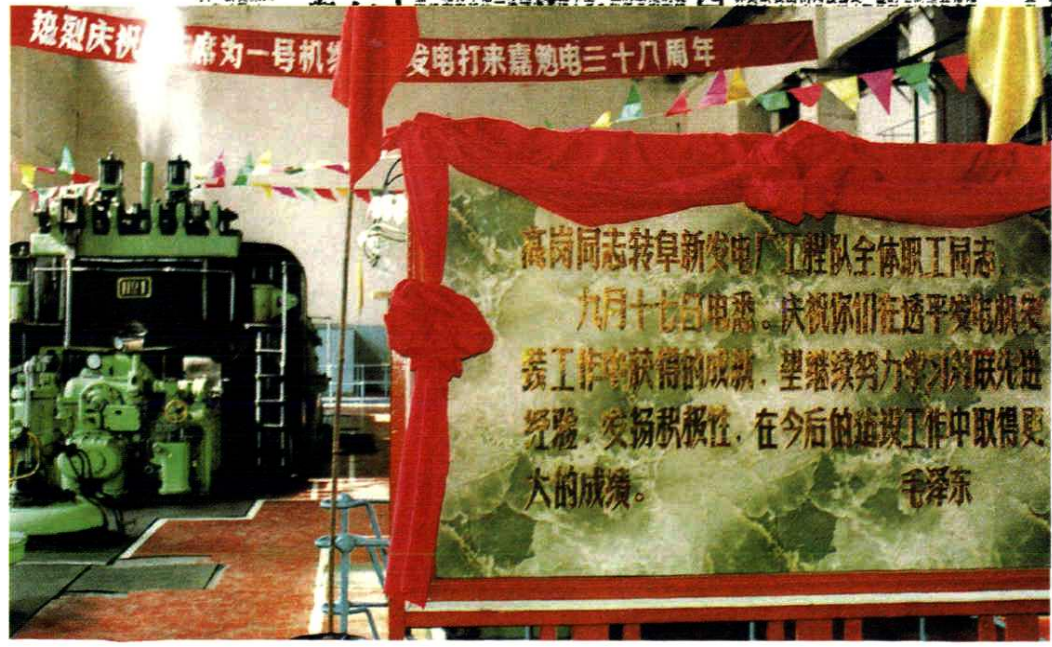 热烈庆祝 席为一号机 发电打来嘉勉电三十八周年
高岗同志转阜新发电厂工程队全体职工同志、
九月十七日电悉。庆祝你们在透平发电机安
装工作中获得的成就，望继续努力学习苏联先进
经验，发扬积极性，在今后的建设工作中取得更
大的成绩。 毛泽东